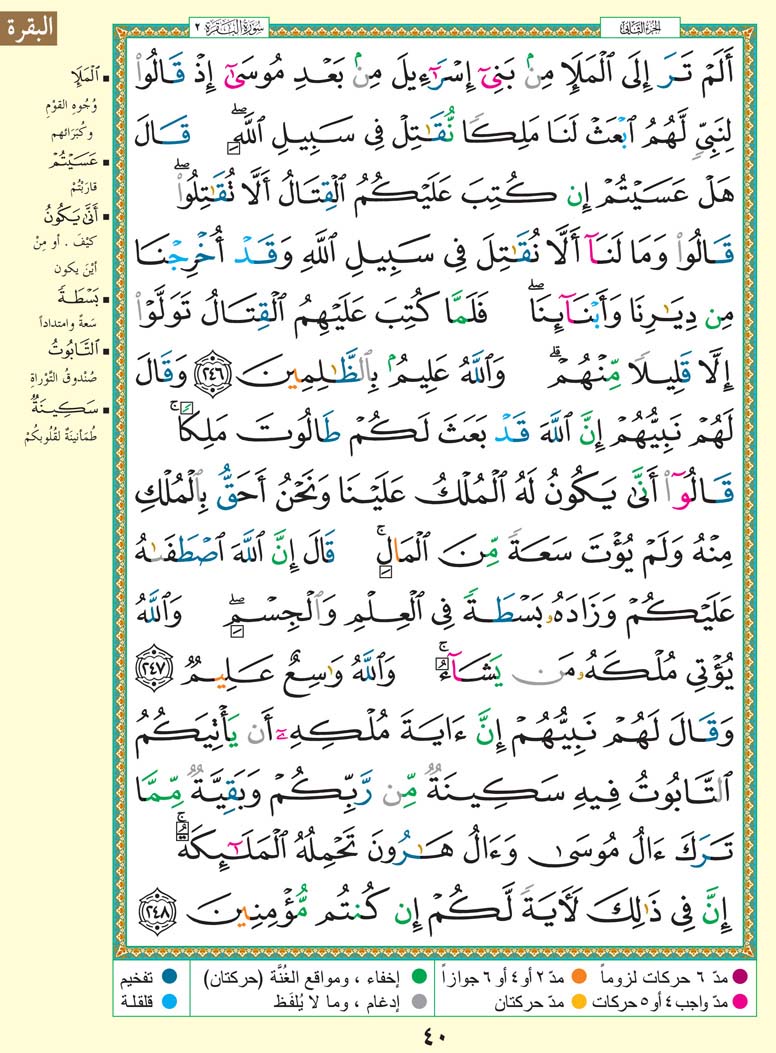 البقرة
سورة البقرة ٢
الجزء الثاني
أَلَمْ تَرَ إِلَى ٱلْمَلَإِ مِنۢ بَنِىٓ إِسْرَٰٓءِيلَ مِنۢ بَعْدِ مُوسَىٰٓ إِذْ قَالُوا۟
لِنَبِىٍّ لَّهُمُ ٱبْعَثْ لَنَا مَلِكًا نُّقَٰتِلْ فِى سَبِيلِ ٱللَّهِ ۖ قَالَ
هَلْ عَسَيْتُمْ إِن كُتِبَ عَلَيْكُمُ ٱلْقِتَالُ أَلَّا تُقَٰتِلُوا۟ ۖ
قَالُوا۟ وَمَا لَنَآ أَلَّا نُقَٰتِلَ فِى سَبِيلِ ٱللَّهِ وَقَدْ أُخْرِجْنَا
مِن دِيَٰرِنَا وَأَبْنَآئِنَا ۖ فَلَمَّا كُتِبَ عَلَيْهِمُ ٱلْقِتَالُ تَوَلَّوْا۟
إِلَّا قَلِيلًا مِّنْهُمْ ۗ وَٱللَّهُ عَلِيمٌۢ بِٱلظَّٰلِمِينَ ٢٤٦ وَقَالَ
لَهُمْ نَبِيُّهُمْ إِنَّ ٱللَّهَ قَدْ بَعَثَ لَكُمْ طَالُوتَ مَلِكًا ۚ
قَالُوٓا۟ أَنَّىٰ يَكُونُ لَهُ ٱلْمُلْكُ عَلَيْنَا وَنَحْنُ أَحَقُّ بِٱلْمُلْكِ
مِنْهُ وَلَمْ يُؤْتَ سَعَةً مِّنَ ٱلْمَالِ ۚ قَالَ إِنَّ ٱللَّهَ ٱصْطَفَىٰهُ
عَلَيْكُمْ وَزَادَهُۥ بَسْطَةً فِى ٱلْعِلْمِ وَٱلْجِسْمِ ۖ وَٱللَّهُ
يُؤْتِى مُلْكَهُۥ مَن يَشَآءُ ۚ وَٱللَّهُ وَٰسِعٌ عَلِيمٌ ٢٤٧
وَقَالَ لَهُمْ نَبِيُّهُمْ إِنَّ ءَايَةَ مُلْكِهِۦٓ أَن يَأْتِيَكُمُ
ٱلتَّابُوتُ فِيهِ سَكِينَةٌ مِّن رَّبِّكُمْ وَبَقِيَّةٌ مِّمَّا
تَرَكَ ءَالُ مُوسَىٰ وَءَالُ هَٰرُونَ تَحْمِلُهُ ٱلْمَلَٰٓئِكَةُ ۚ
إِنَّ فِى ذَٰلِكَ لَءَايَةً لَّكُمْ إِن كُنتُم مُّؤْمِنِينَ ٢٤٨
▪ ٱلْمَلَإِ
وُجُوهِ القَوْمِ
وكُبَرَائهم
▪ عَسَيْتُمْ
قارَبْتُمْ
▪ أَنَّىٰ يَكُونُ
كيْفَ . أو مِنْ
أيْنَ يكون
▪ بَسْطَةً
سَعةً وامتداداً
▪ ٱلتَّابُوتُ
صُنْدوقُ التَّوْراةِ
▪ سَكِينَةٌ
طُمَأنينَةٌ لقُلُوبكُمْ
مدّ ٦ حركات لزوماً
مدّ ٢ أو ٤ أو ٦ جوازاً
إخفاء ، ومواقع الغُنَّة (حركتان)
تفخيم
مدّ واجب ٤ أو ٥ حركات
مدّ حركتان
إدغام ، وما لا يُلفَظ
قلقلة
٤٠